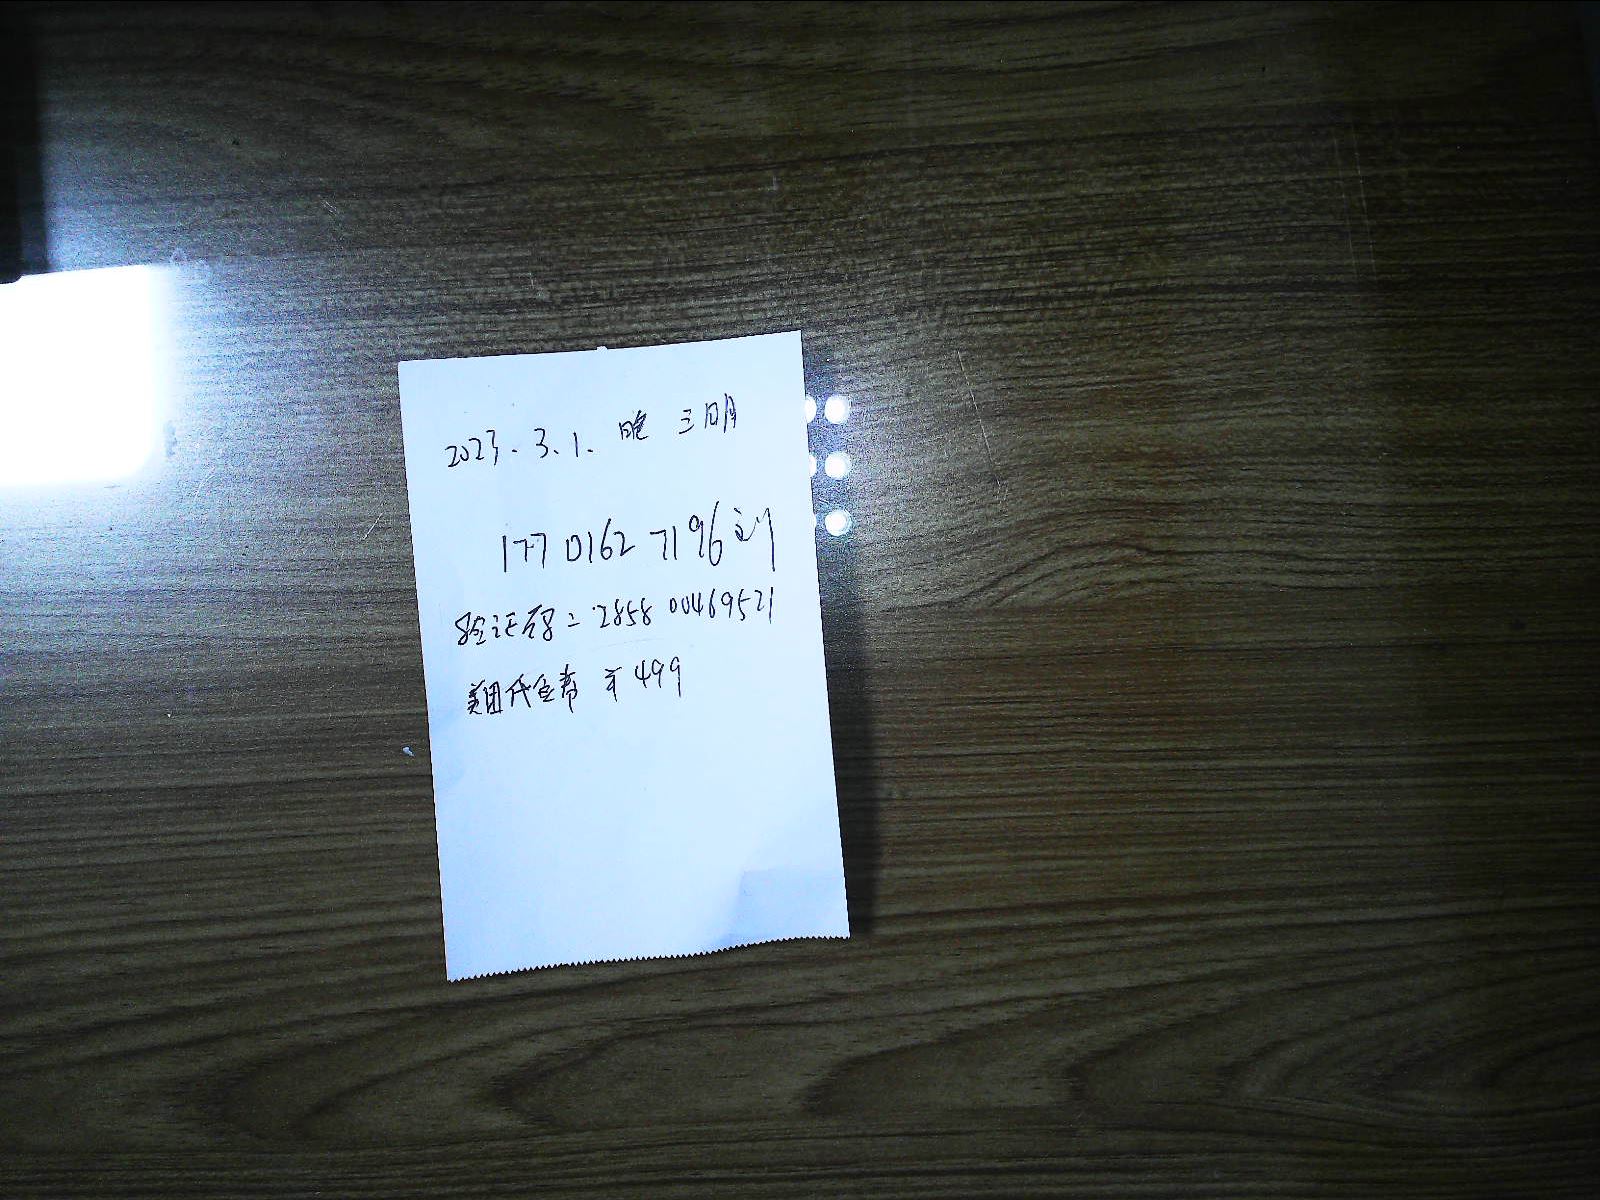 2023.3.1. 晚 三明
177 0162 7196 刘
验证码:2858 00469521
美团代金券 ¥499